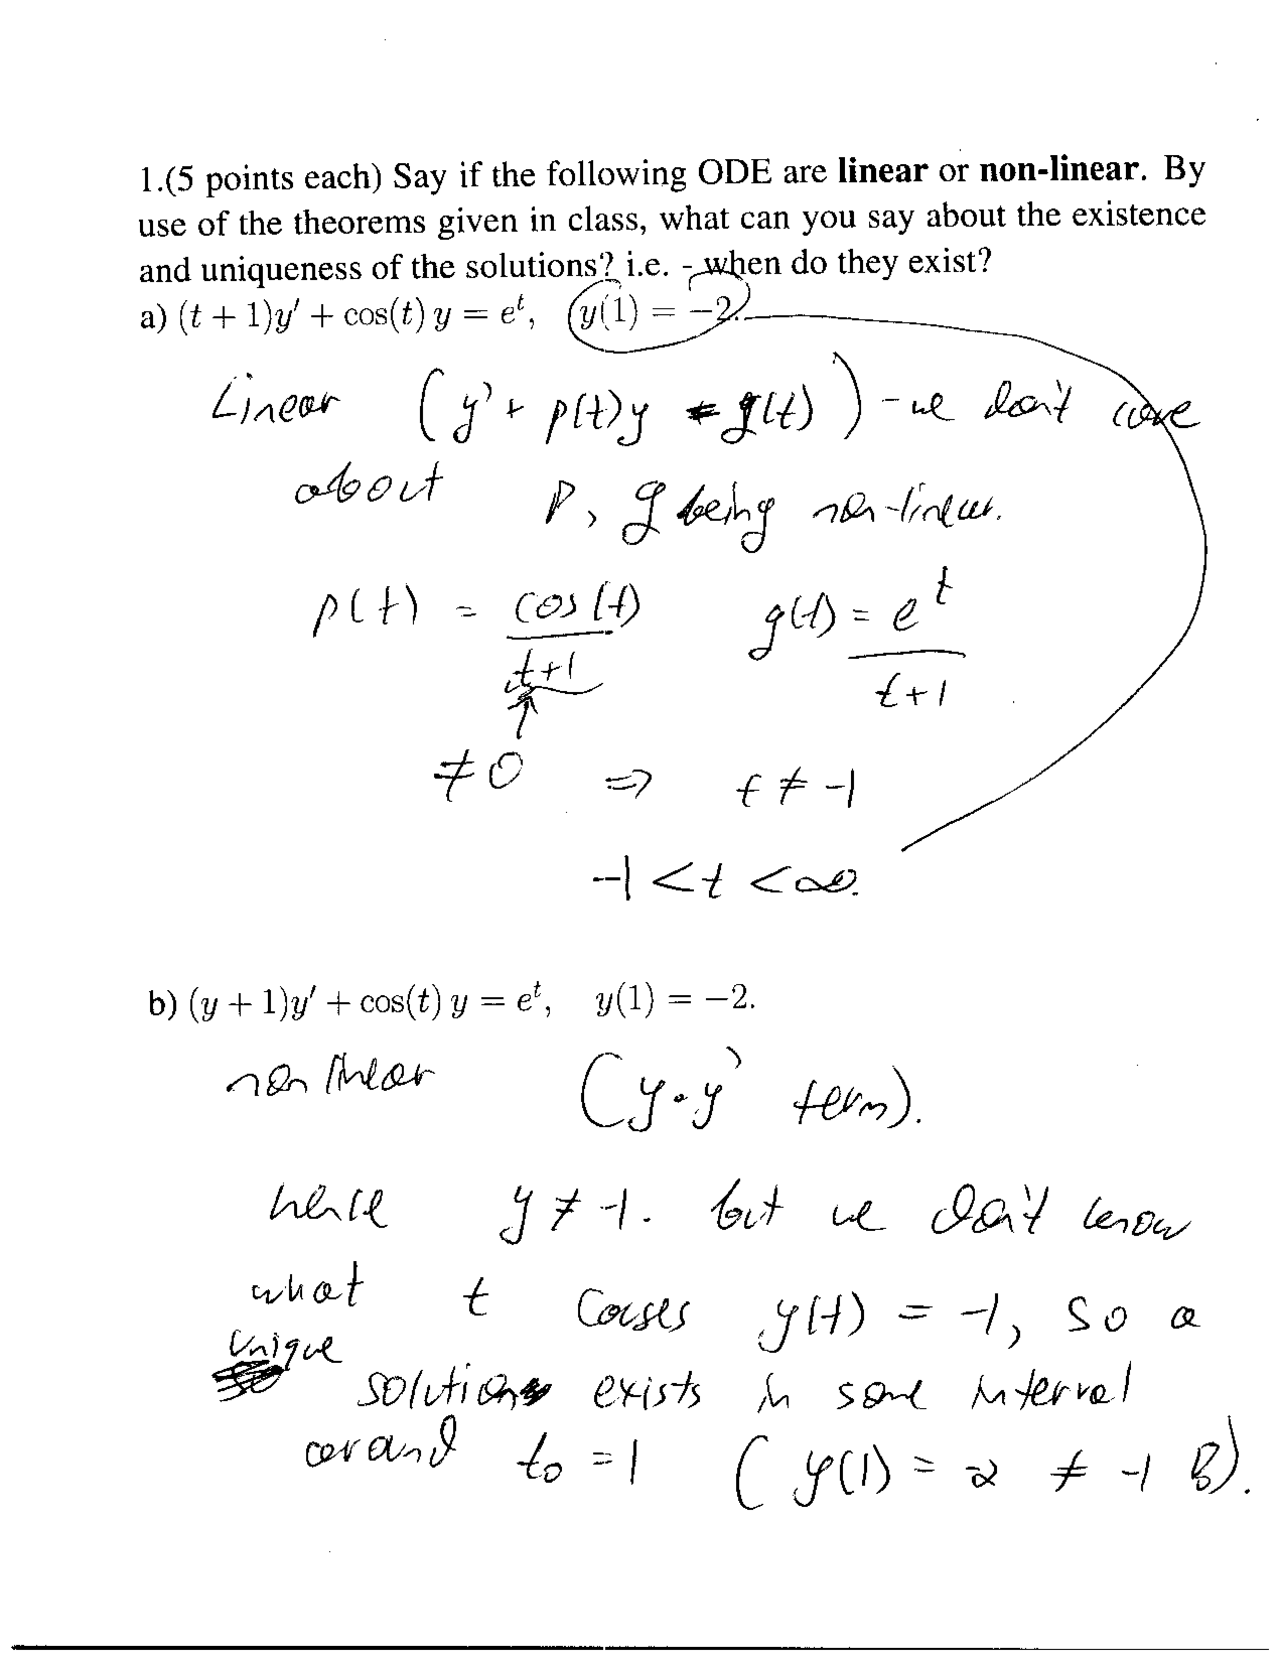 1.(5 points each) Say if the following ODE are linear or non-linear. By
use of the theorems given in class, what can you say about the existence
and uniqueness of the solutions? i.e. - when do they exist?
a) (t + 1)y′ + cos(t) y = eᵗ, y(1) = −2.
Linear (y' + p(t)y = g(t)) - we don't care
about p, g being non-linear.
p(t) = cos(t)/(t+1) g(t) = eᵗ/(t+1)
≠0 ⇒ t ≠ -1
-1 < t < ∞.
b) (y + 1)y′ + cos(t) y = eᵗ, y(1) = −2.
non linear (y·y' term).
hence y ≠ -1. but we don't know
what t causes y(t) = -1, so a
unique
solution exists in some interval
around t₀ = 1 (y(1) = 2 ≠ -1 ).